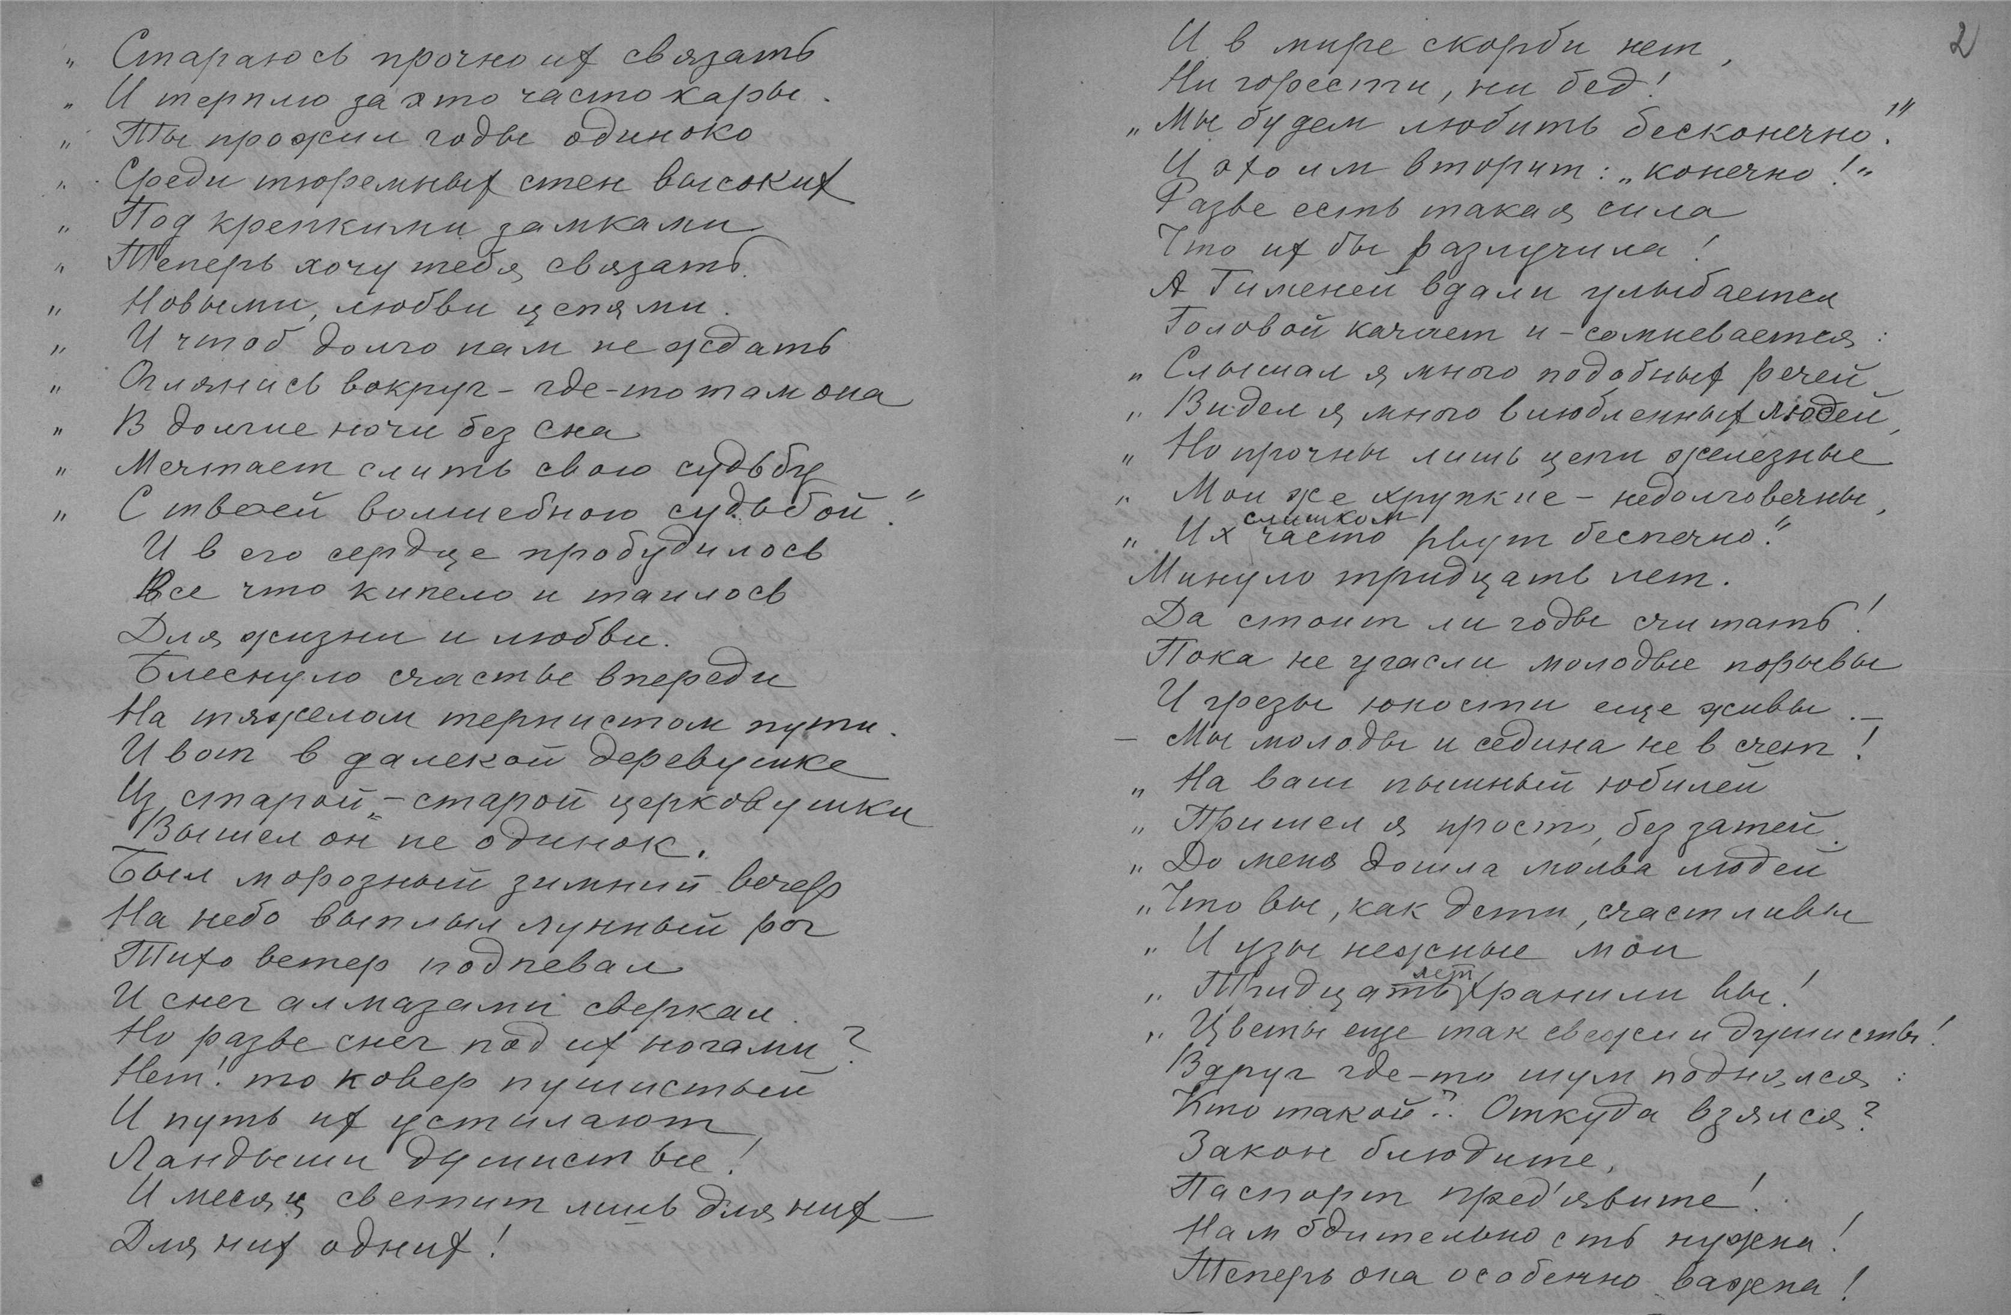 „ Стараюсь прочно их связать
„ И терплю за это часто кары.
„ Ты прожил годы одиноко
„ Среди тюремных стен высоких
„ Под крепкими замками
„ Теперь хочу тебя связать
„ Новыми, любви цепями.
„ И чтоб долго нам не ждать
„ Оглянись вокруг – где-то там она
„ В долгие ночи без сна
„ Мечтает слить свою судьбу
„ С твоей волшебною судьбой."
И в его сердце пробудилось
Все что кипело и таилось
Для жизни и любви.
Блеснуло счастье впереди
На тяжелом тернистом пути.
И вот в далекой деревушке
Из старой-старой церковушки
Вышел он не одинок.
Был морозный зимний вечер
На небо выплыл лунный рог
Тихо ветер подпевал
И снег алмазами сверкал.
Но разве снег под их ногами?
Нет! то ковер пушистый
И путь их устилают
Ландыши душистые!
И месяц светит лишь для них –
Для них одних!
2
И в мире скорби нет,
Ни горести, ни бед!
„Мы будем любить бесконечно!"
И эхо им вторит: „конечно!"
Разве есть такая сила
Что их бы разлучила!
А Гименей вдали улыбается
Головой качает и – сомневается:
„ Слышал я много подобных речей
„ Видел я много влюбленных людей,
„ Но прочны лишь цепи железные
„ Мои же хрупкие – недолговечны,
„ Их слишком часто рвут беспечно."
Минуло тридцать лет.
Да стоит ли годы считать!
Пока не угасли молодые порывы
И грезы юности еще живы. –
– Мы молоды и седина не в счет!
„ На ваш пышный юбилей
„ Пришел я просто, без затей.
„ До меня дошла молва людей
„ Что вы, как дети, счастливы
„ И узы нежные мои
„ Тридцать лет хранили вы!
„ Цветы еще так свежи и душисты!
Вдруг где-то шум поднялся:
Кто такой? Откуда взялся?
Закон блюдите,
Паспорт пред'явите!
Нам бдительность нужна!
Теперь она особенно важна!